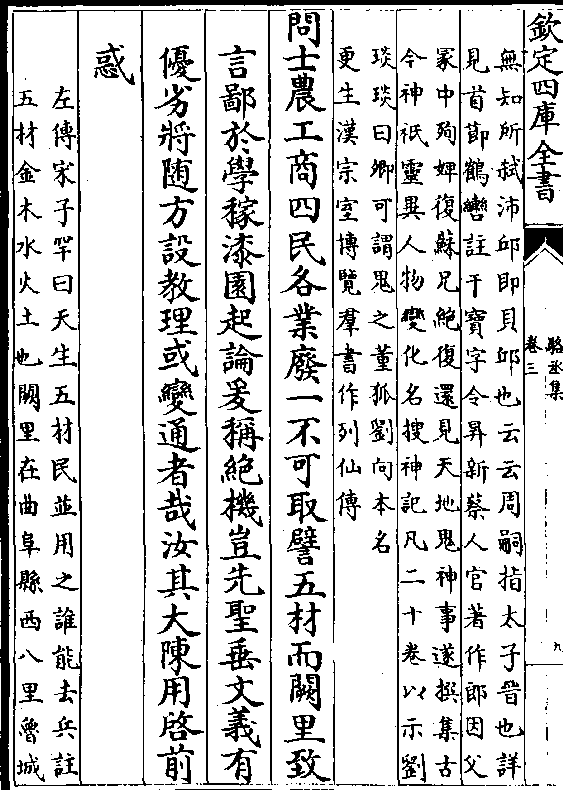 欽定四庫全書
駱丞集
卷三
九
無知所弒沛邱即貝邱也云云周嗣指太子晉也詳
見首節鶴轡註干寶字令昇新蔡人官著作郎因父
冢中殉婢復蘇兄絶復還見天地鬼神事遂撰集古
今神祇靈異人物變化名搜神記凡二十卷以示劉
琰琰曰卿可謂鬼之董狐劉向本名
更生漢宗室博覽羣書作列仙傳
問士農工商四民各業廢一不可取譬五材而闕里致
言鄙於學稼漆園起論爰稱絶機豈先聖垂文義有
優劣將随方設教理或變通者哉汝其大陳用啓前
惑
左傳宋子罕曰天生五材民並用之誰能去兵註
五材金木水火土也闕里在曲阜縣西八里魯城